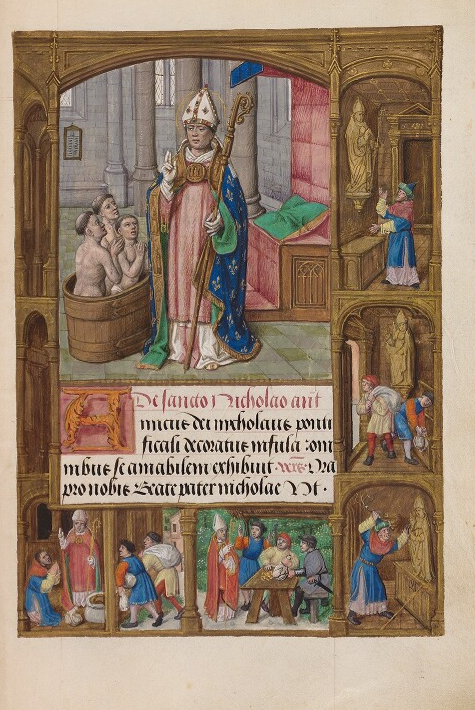 De sancto Nicholao ant
Amicus dei nicholaus ponti
ficali decoratus infula om
nibus se amabilem exhibuit. Ora
pro nobis Beate pater nicholae Vt.